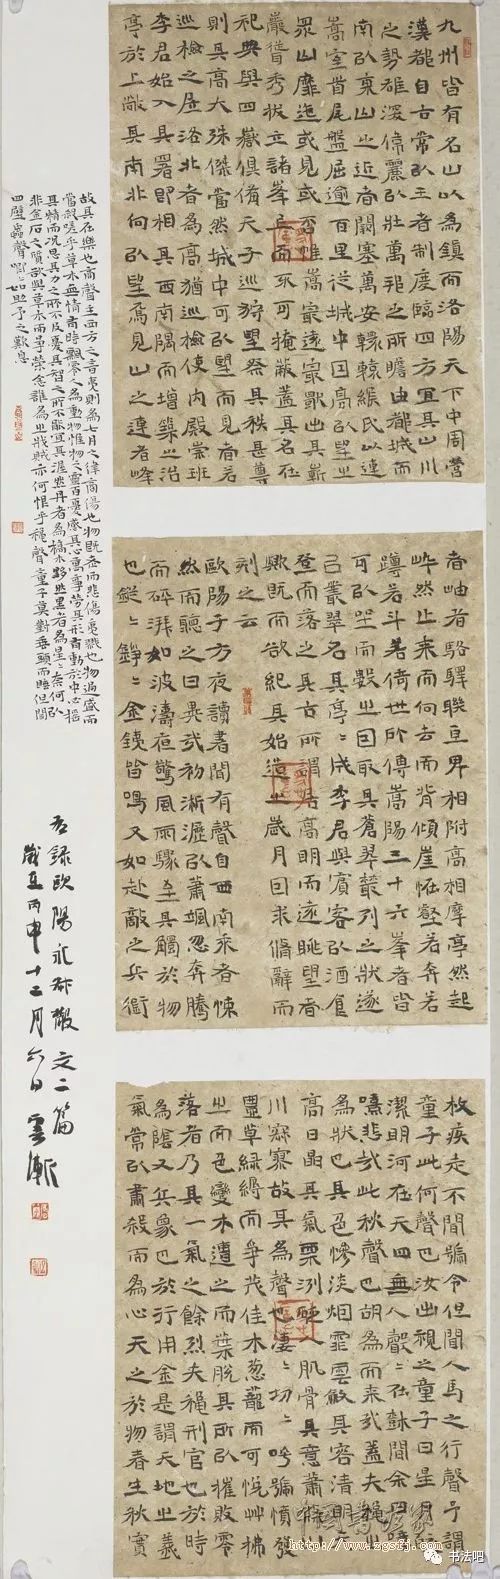 九州皆有名山以為鎮而洛陽天下中周營
漢都自古常以王者制度臨四方宜其山川
之勢雄深偉麗以壯萬邦之所瞻由都城而
南以東山之近者闕塞萬安轘轅緱氏以連
嵩室首尾盤屈逾百里從城中因高以望之
眾山靡迤或見或否惟嵩最遠最獨出其嶄
巖聳秀拔立諸峯上而不可掩蔽蓋其名在
祀典與四嶽俱備天子巡狩望祭其秩甚尊
則其高大殊傑當然城中可以望而見者若
巡檢之居洛北者為高猶巡檢使內殿崇班
李君始入其署即相其西南隅而增築之治
亭於上敞其南北向以望焉見山之連者峰
者岫者駱驛聯亘卑相附高相摩亭然起
崪然止來而向去而背傾崖怪壑若奔若
蹲若斗若倚世所傳嵩陽三十六峯者皆
可以坐而數之因取其蒼翠叢列之狀遂
以叢翠名其亭亭成李君與賓客以酒食
登而落之其古所謂居高明而遠眺望者
歟既而欲紀其始造之歲月因求脩辭而
刻之云
歐陽子方夜讀書聞有聲自西南來者悚
然而聽之曰異哉初淅瀝以蕭颯忽奔騰
而砰湃如波濤夜驚風雨驟至其觸於物
也鏦〻錚〻金鐵皆鳴又如赴敵之兵銜
枚疾走不聞號令但聞人馬之行聲予謂
童子此何聲也汝出視之童子曰星月皎
潔明河在天四無人聲〻在樹間余曰噫
嘻悲哉此秋聲也胡為而來哉蓋夫秋之
為狀也其色慘淡烟霏雲斂其容清明天
高日晶其氣栗冽砭人肌骨其意蕭條山
川寂寥故其為聲也淒〻切〻呼號憤發
豐草綠縟而爭茂佳木葱蘢而可悅艸拂
之而色變木遭之而葉脫其所以摧敗零
落者乃其一氣之餘烈夫秋刑官也於時
為陰又兵象也於行用金是謂天地之義
氣常以肅殺而為心天之於物春生秋實
故其在樂也商聲主西方之音夷則為七月之律商傷也物既老而悲傷夷戮也物過盛而
當殺嗟乎草木無情有時飄零人為動物惟物之靈百憂感其心萬事勞其形有動於中必搖
其精而況思其力之所不及憂其智之所不能宜其渥然丹者為槁木黟然黑者為星〻奈何以
非金石之質欲與草木而爭榮念誰為之戕賊亦何恨乎秋聲童子莫對垂頭而睡但聞
四壁蟲聲唧〻如助予之歎息
右錄歐陽永叔散文二篇
歲在丙申十二月六日
中國書法家
http://www.zgsfj.com
书法吧